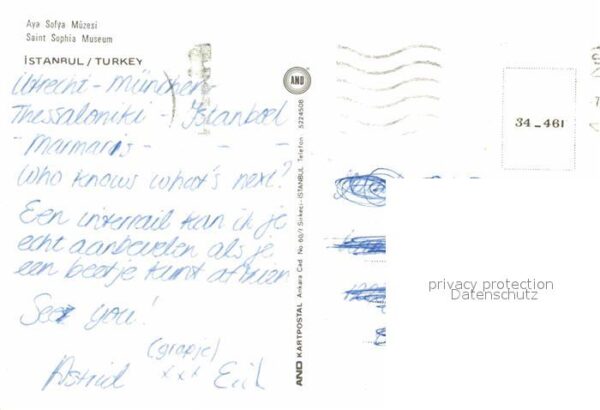 Aya Sofya Müzesi
Saint Sophia Museum
İSTANBUL / TURKEY
Utrecht - München -
Thessaloniki - Istanboel
- Marmaris - - -
Who knows what's next?
Een interrail kan ik je
echt aanbevelen als je
een beetje kunt afzien
See you!
(grapje)
Astrid xxx Erik
AND
AND KARTPOSTAL Ankara Cad. No 60/1 Sirkeci - İSTANBUL Telefon 5224508
34-461
privacy protection
Datenschutz